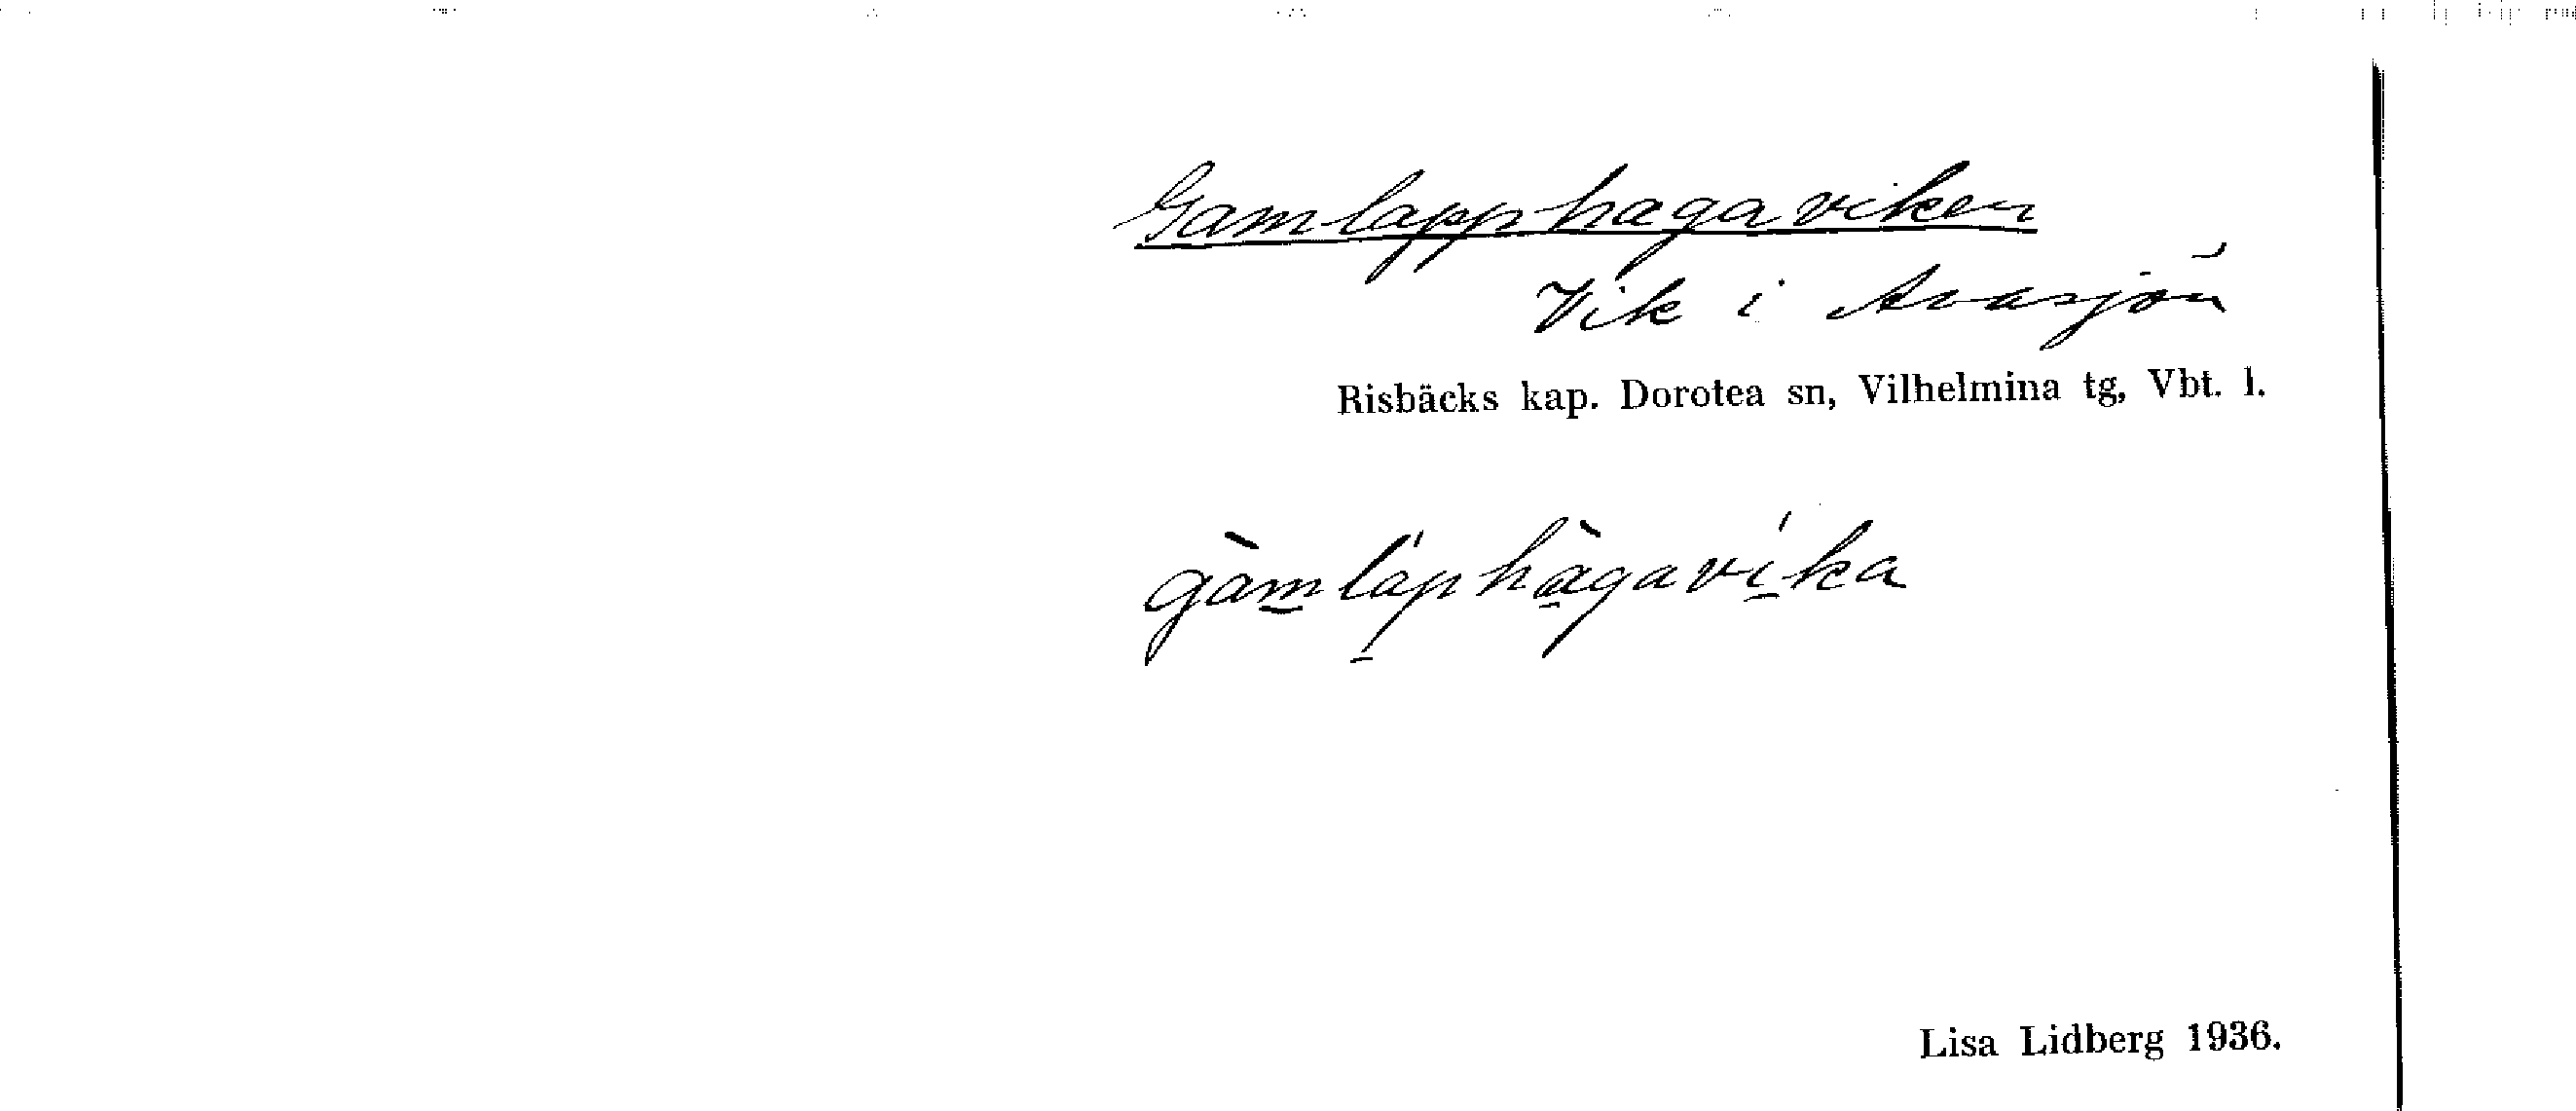 Gamlapphagaviken
Vik i Avasjön
Risbäcks kap. Dorotea sn, Vilhelmina tg, Vbt. l.
gàmláphàgavíka
Lisa Lidberg 1936.